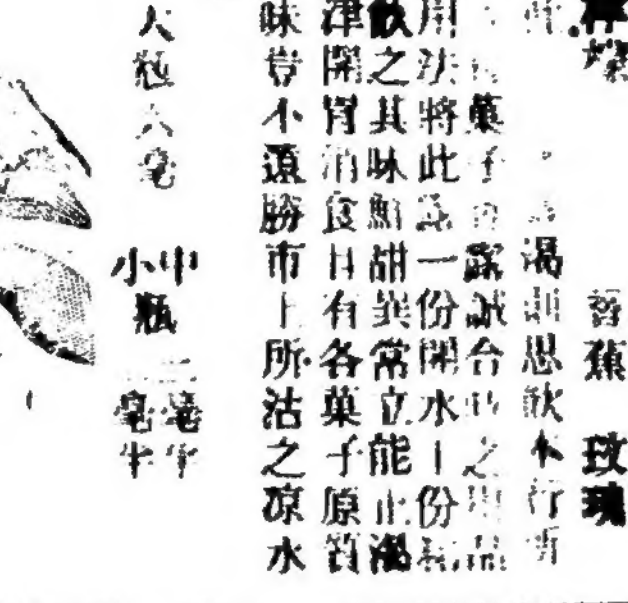 香蕉 玫瑰
渴則思飲本行所
菓子露誠合時之用品
用法將此露一份開水十份和
飲之其味鮮甜異常立能止渴
津開胃消食且有各菓子原質
味豈不遠勝市上所沽之凉水
大瓶六毫 中小瓶 毫半 毫半